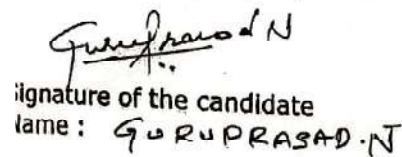 Guruprasad N
ignature of the candidate
Name : GURUPRASAD.N